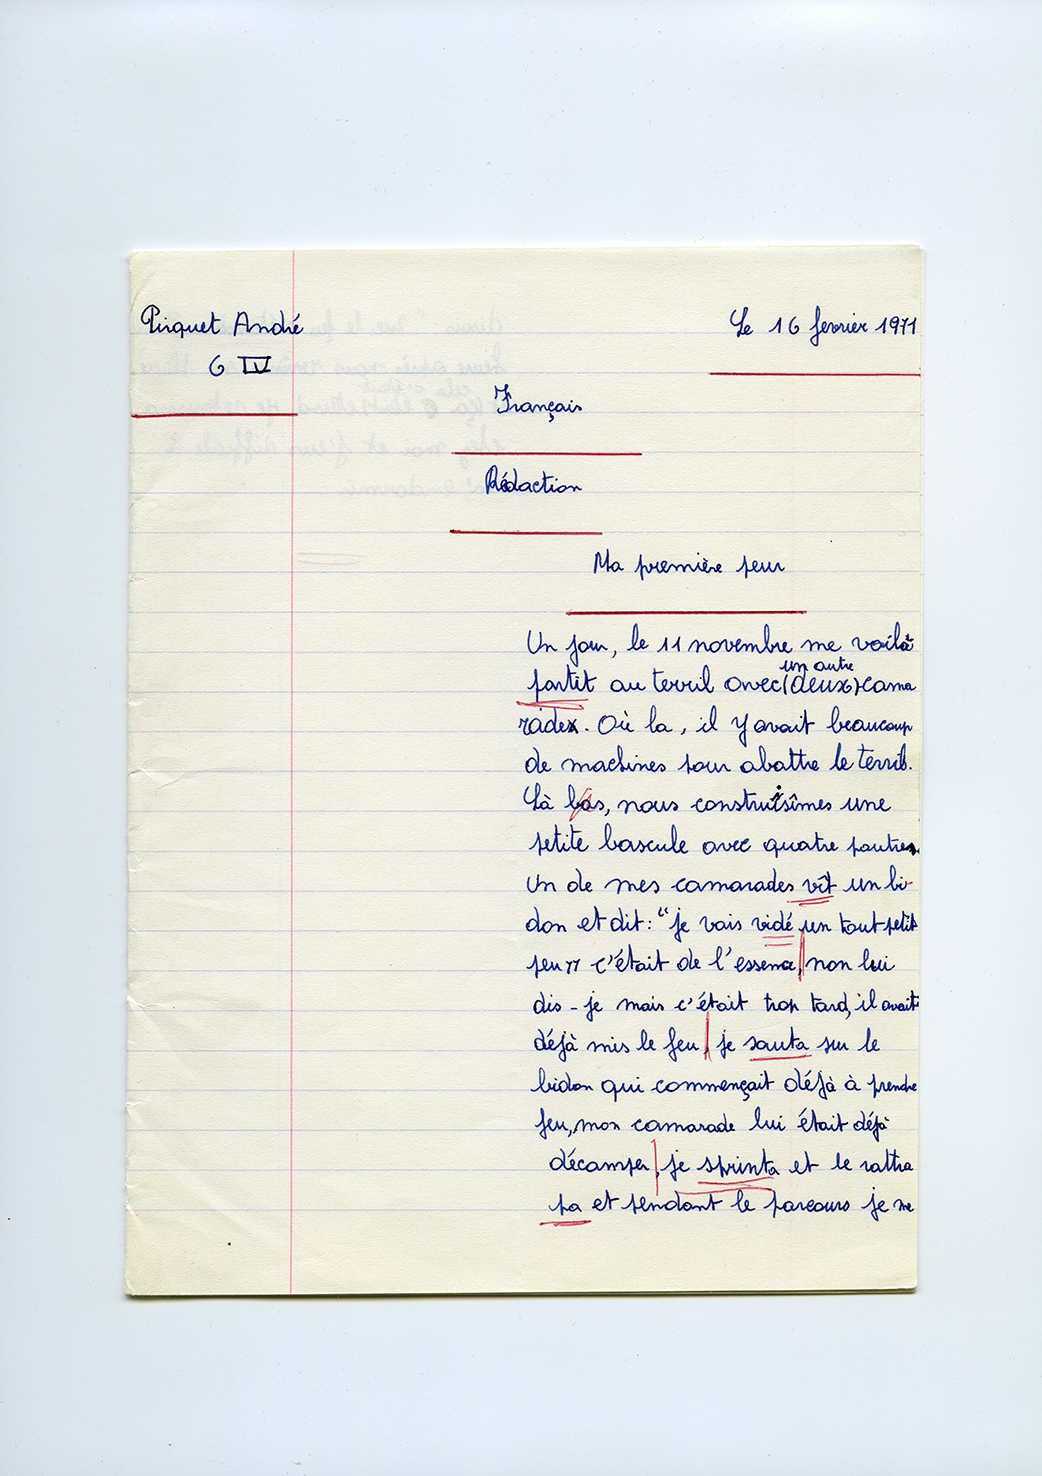 Pirquet André
Le 16 fevrier 1971
6 IV
Français
Rédaction
Ma première peur
Un jour, le 11 novembre me voilà
un autre
partit au terril avec (deux) cama
rades. Où la, il y avait beaucoup
de machines pour abattre le terril.
Là bas, nous construisîmes une
petite bascule avec quatre poutres.
Un de mes camarades vît un bi-
don et dit : "je vais vidé un tout petit
peu" c'était de l'essence, non lui
dis-je mais c'était trop tard, il avait
déjà mis le feu, je sauta sur le
bidon qui commençait déjà à prendre
feu, mon camarade lui était déjà
décamper, je sprinta et le rattra
pa et pendant le parcours je me